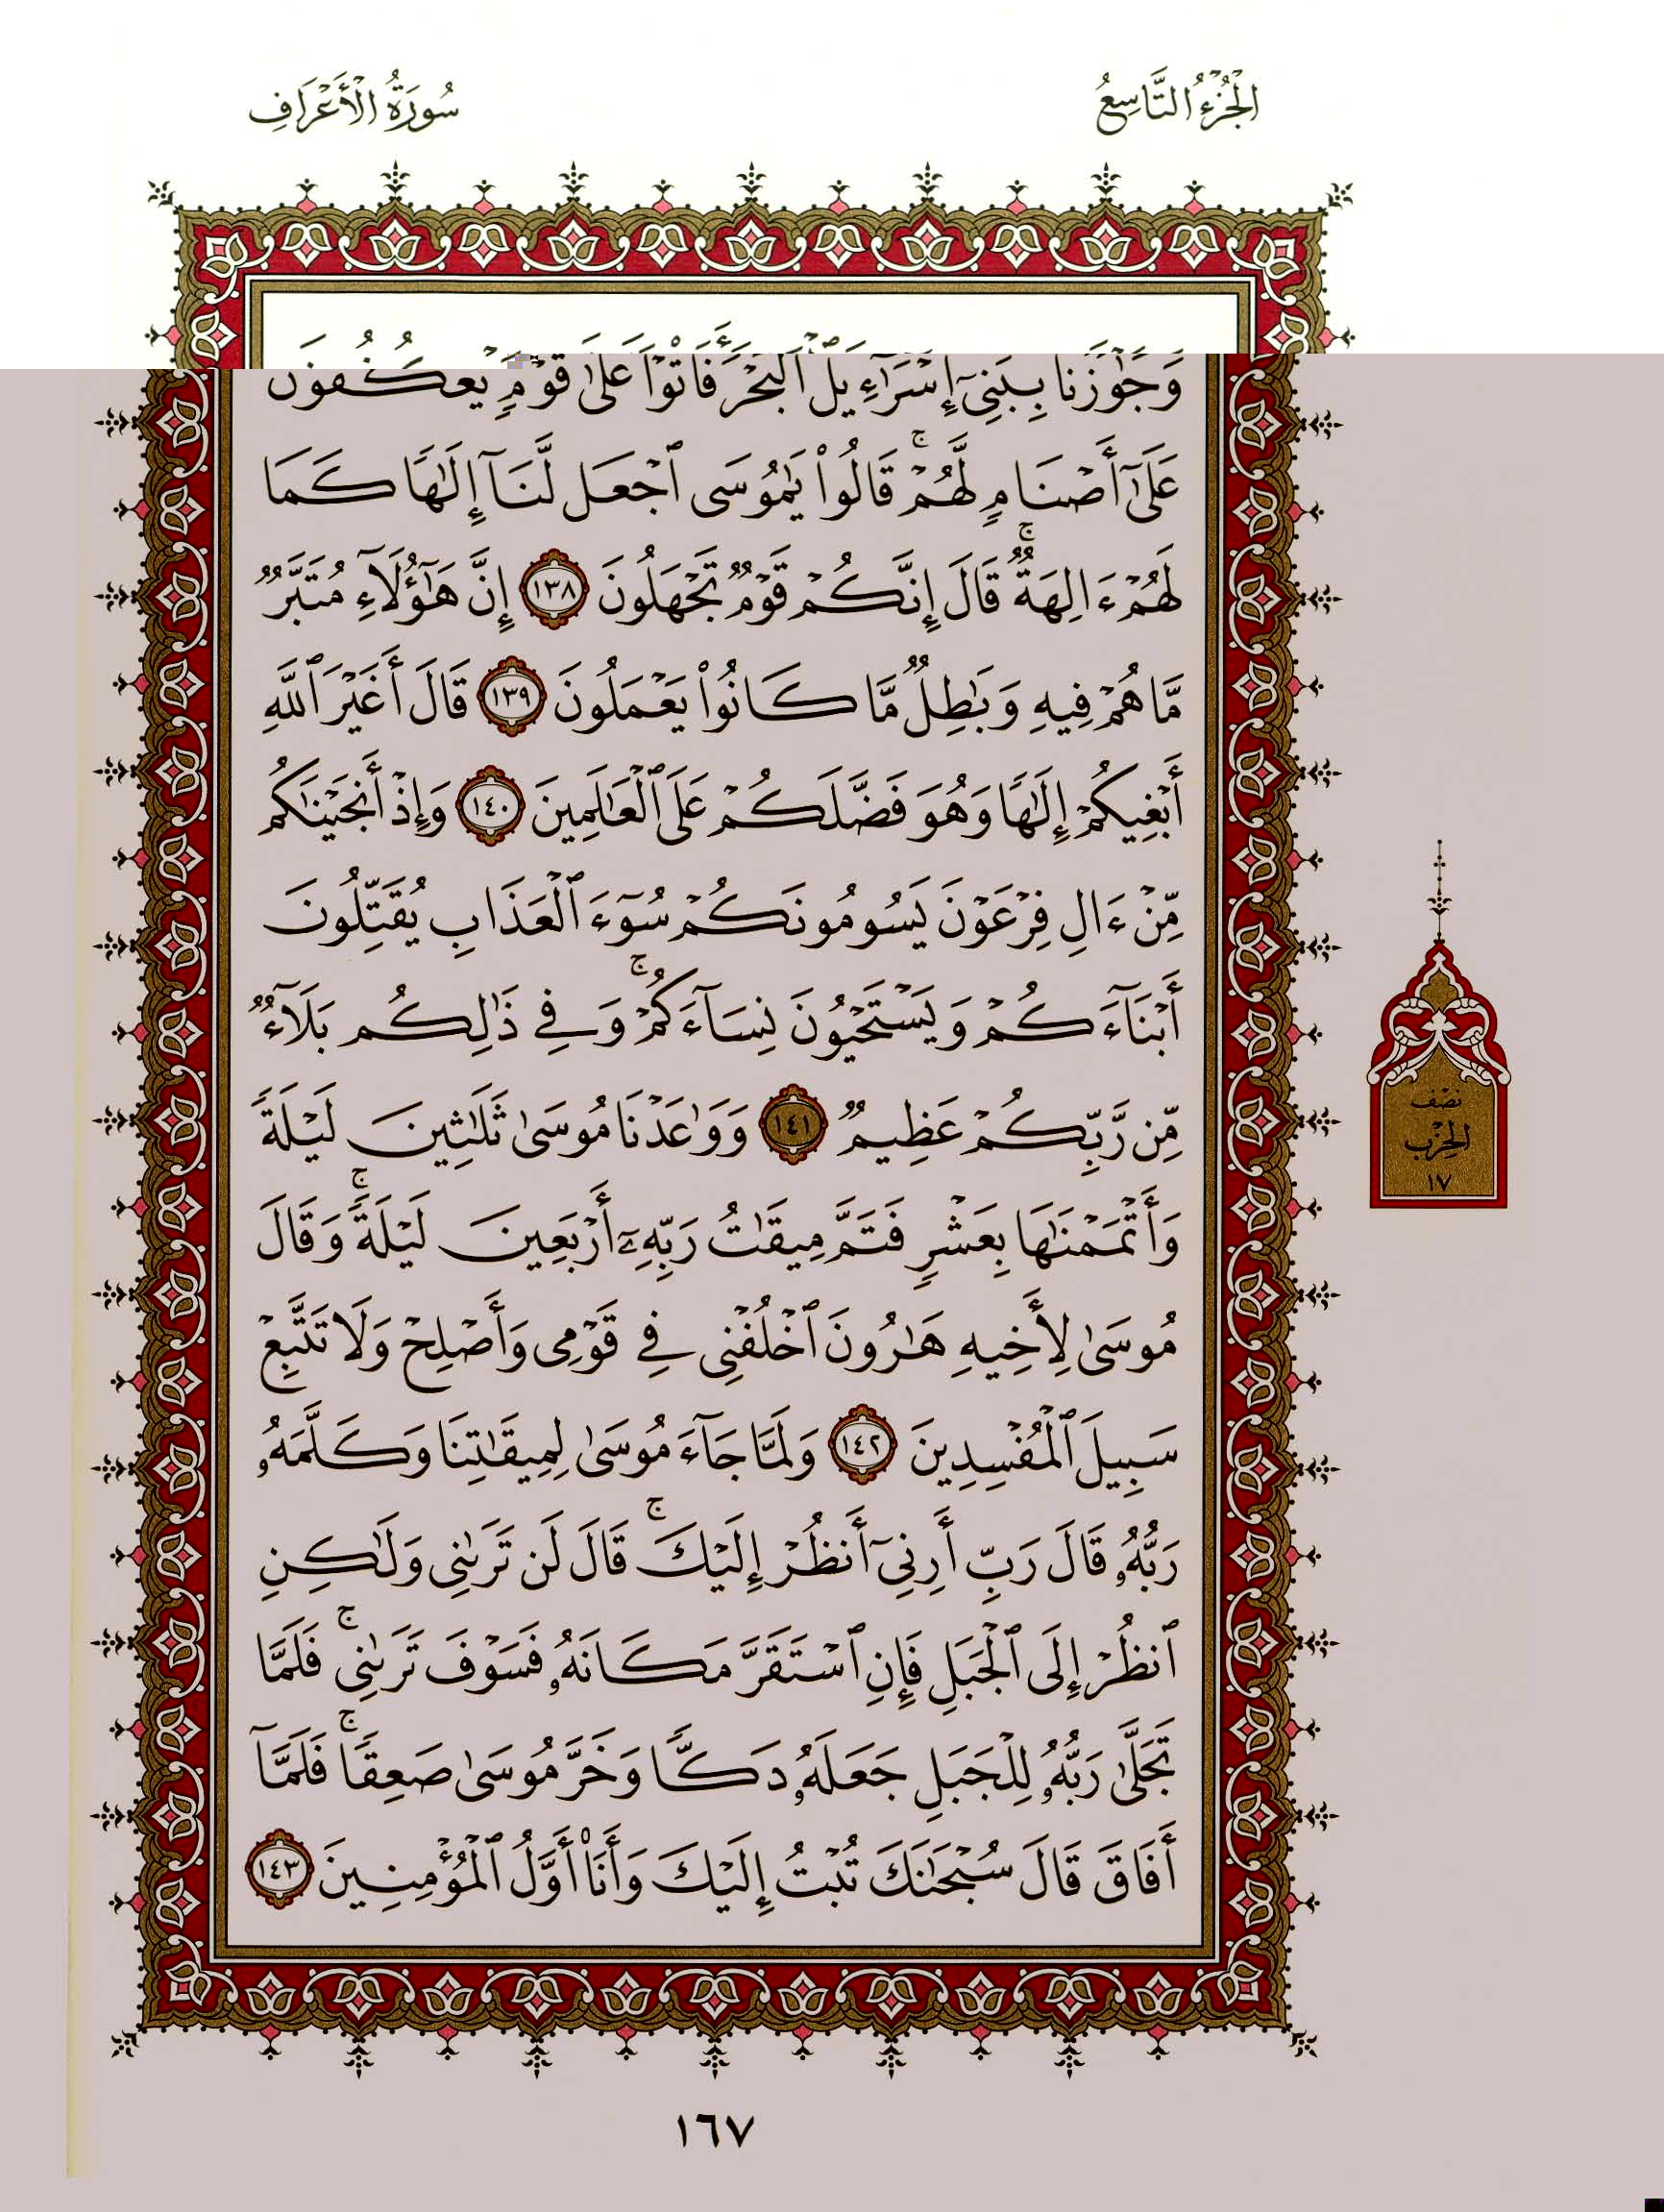 الجُزْءُ التَّاسِعُ
سُورَةُ الأَعْرَافِ
وَجَٰوَزْنَا بِبَنِىٓ إِسْرَٰٓءِيلَ ٱلْبَحْرَ فَأَتَوْا۟ عَلَىٰ قَوْمٍ يَعْكُفُونَ
عَلَىٰٓ أَصْنَامٍ لَّهُمْ ۚ قَالُوا۟ يَٰمُوسَى ٱجْعَل لَّنَآ إِلَٰهًا كَمَا
لَهُمْ ءَالِهَةٌ ۚ قَالَ إِنَّكُمْ قَوْمٌ تَجْهَلُونَ ١٣٨ إِنَّ هَٰٓؤُلَآءِ مُتَبَّرٌ
مَّا هُمْ فِيهِ وَبَٰطِلٌ مَّا كَانُوا۟ يَعْمَلُونَ ١٣٩ قَالَ أَغَيْرَ ٱللَّهِ
أَبْغِيكُمْ إِلَٰهًا وَهُوَ فَضَّلَكُمْ عَلَى ٱلْعَٰلَمِينَ ١٤٠ وَإِذْ أَنجَيْنَٰكُم
مِّنْ ءَالِ فِرْعَوْنَ يَسُومُونَكُمْ سُوٓءَ ٱلْعَذَابِ يُقَتِّلُونَ
أَبْنَآءَكُمْ وَيَسْتَحْيُونَ نِسَآءَكُمْ ۚ وَفِى ذَٰلِكُم بَلَآءٌ
مِّن رَّبِّكُمْ عَظِيمٌ ١٤١ وَوَٰعَدْنَا مُوسَىٰ ثَلَٰثِينَ لَيْلَةً
وَأَتْمَمْنَٰهَا بِعَشْرٍ فَتَمَّ مِيقَٰتُ رَبِّهِۦٓ أَرْبَعِينَ لَيْلَةً ۚ وَقَالَ
مُوسَىٰ لِأَخِيهِ هَٰرُونَ ٱخْلُفْنِى فِى قَوْمِى وَأَصْلِحْ وَلَا تَتَّبِعْ
سَبِيلَ ٱلْمُفْسِدِينَ ١٤٢ وَلَمَّا جَآءَ مُوسَىٰ لِمِيقَٰتِنَا وَكَلَّمَهُۥ
رَبُّهُۥ قَالَ رَبِّ أَرِنِىٓ أَنظُرْ إِلَيْكَ ۚ قَالَ لَن تَرَىٰنِى وَلَٰكِنِ
ٱنظُرْ إِلَى ٱلْجَبَلِ فَإِنِ ٱسْتَقَرَّ مَكَانَهُۥ فَسَوْفَ تَرَىٰنِى ۚ فَلَمَّا
تَجَلَّىٰ رَبُّهُۥ لِلْجَبَلِ جَعَلَهُۥ دَكًّا وَخَرَّ مُوسَىٰ صَعِقًا ۚ فَلَمَّآ
أَفَاقَ قَالَ سُبْحَٰنَكَ تُبْتُ إِلَيْكَ وَأَنَا۠ أَوَّلُ ٱلْمُؤْمِنِينَ ١٤٣
نصْف
الحِزْب
١٧
١٦٧